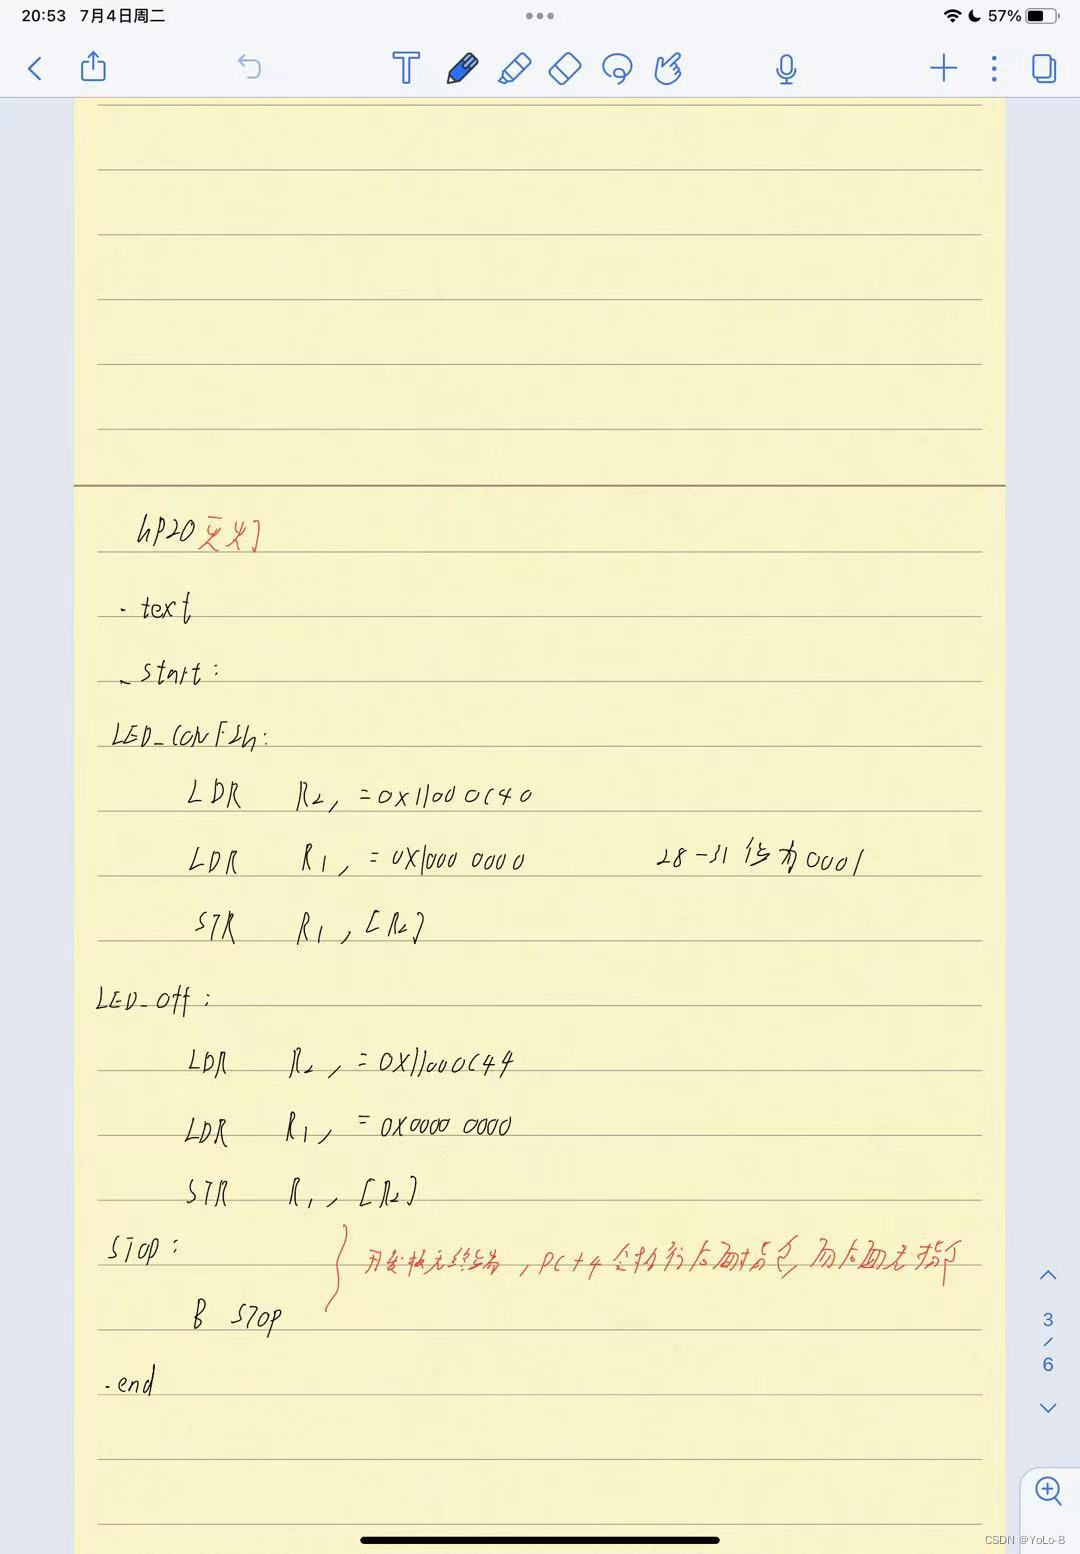 20:53 7月4日周二
57%
hP20 灭灯
.text
_start:
LED_CONFIG:
LDR R2, =0x11000C40
LDR R1, =0X1000 0000 28-31位为0001
STR R1, [R2]
LED_Off:
LDR R2, =0X11000C44
LDR R1, =0X0000 0000
STR R1, [R2]
STOP: 开发板无终端,PC+4会执行后面指令,而后面无指令
B STOP
.end
3
/
6
CSDN @YoLo-8